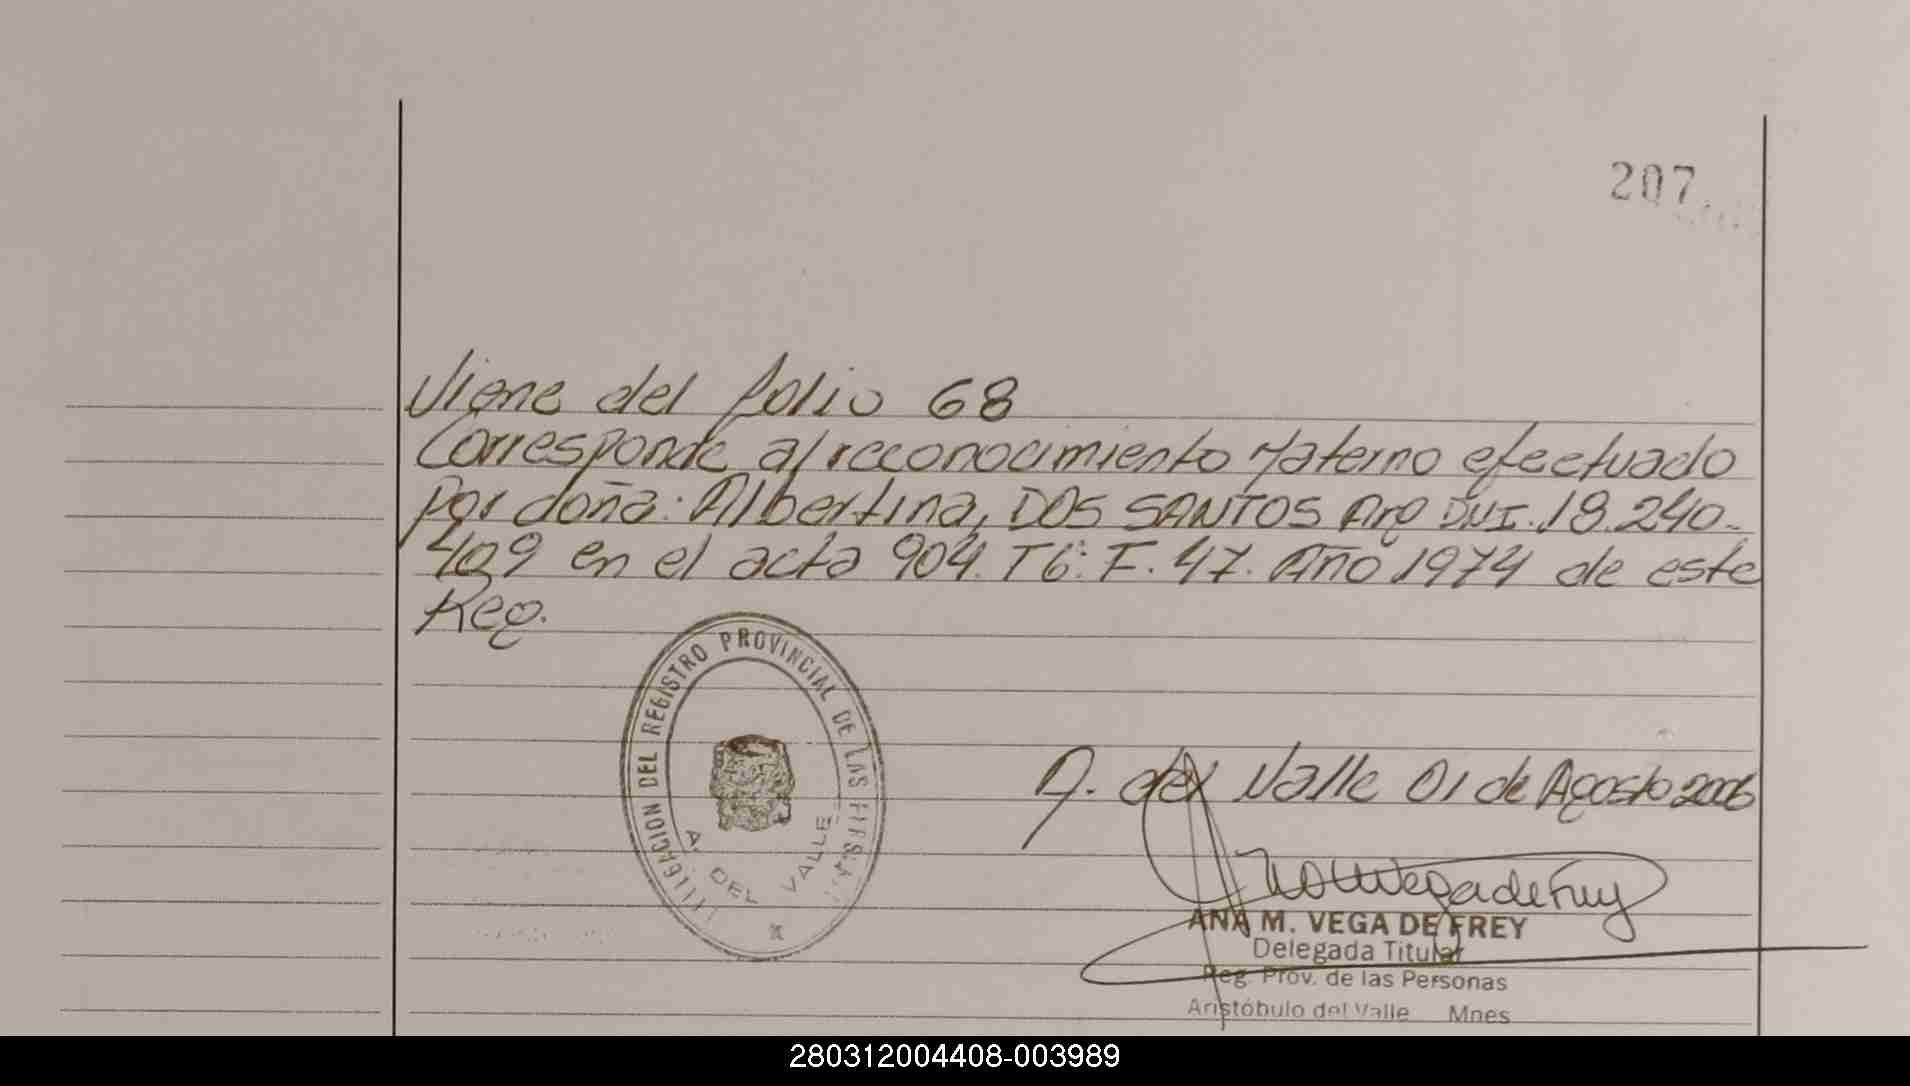 207
Viene del folio 68
Corresponde al reconocimiento Materno efectuado
por doña: Albertina, DOS SANTOS Arg DNI. 18.240.
409 en el acta 904. T6: F. 47. Año 1974 de este
Reg.
DELEGACION DEL REGISTRO PROVINCIAL DE LAS PERSONAS
A. DEL VALLE
A. del Valle 01 de Agosto 2006
Ana M Vega de Frey
ANA M. VEGA DE FREY
Delegada Titular
Reg. Prov. de las Personas
Aristóbulo del Valle Mnes
280312004408-003989